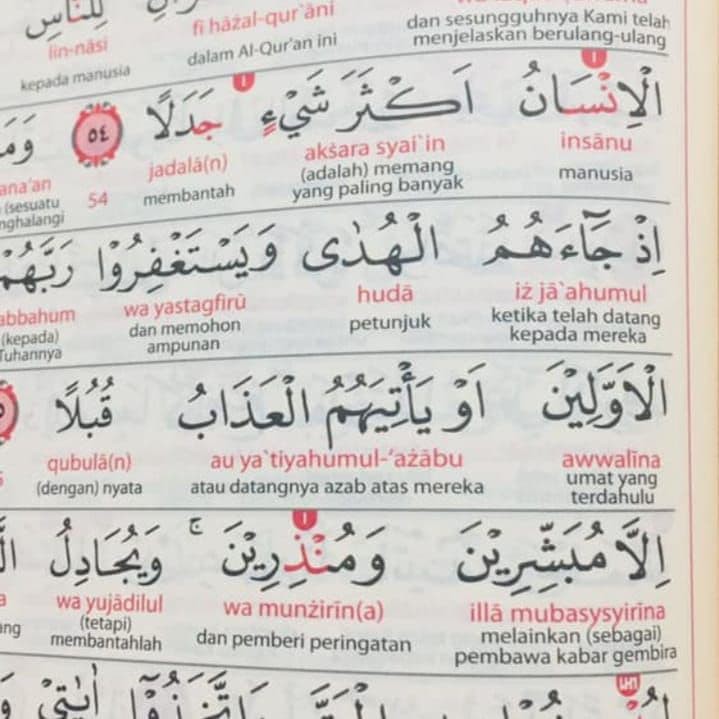 لِلنَّاسِ
fī hāżal-qur`āni lin-nāsi
dan sesungguhnya Kami telah menjelaskan berulang-ulang
dalam Al-Qur'an ini
kepada manusia
الْاِنْسَانُ اَكْثَرَ شَيْءٍ جَدَلًا ٥٤
insānu akśara syai`in jadalā(n) 54
manusia
(adalah) memang yang paling banyak
membantah
(sesuatu
اِذْ جَاۤءَهُمُ الْهُدٰى وَيَسْتَغْفِرُوْا رَبَّهُمْ
iż jā`ahumul hudā wa yastagfirū abbahum
ketika telah datang kepada mereka
petunjuk
dan memohon ampunan
(kepada) Tuhannya
الْاَوَّلِيْنَ اَوْ يَأْتِيَهُمُ الْعَذَابُ قُبُلًا
awwalīna au ya`tiyahumul-‘ażābu qubulā(n)
umat yang terdahulu
atau datangnya azab atas mereka
(dengan) nyata
اِلَّا مُبَشِّرِيْنَ وَمُنْذِرِيْنَۚ وَيُجَادِلُ
illā mubasysyirīna wa munżirīn(a) wa yujādilul
melainkan (sebagai) pembawa kabar gembira
dan pemberi peringatan
(tetapi) membantahlah
اٰيٰتِيْ